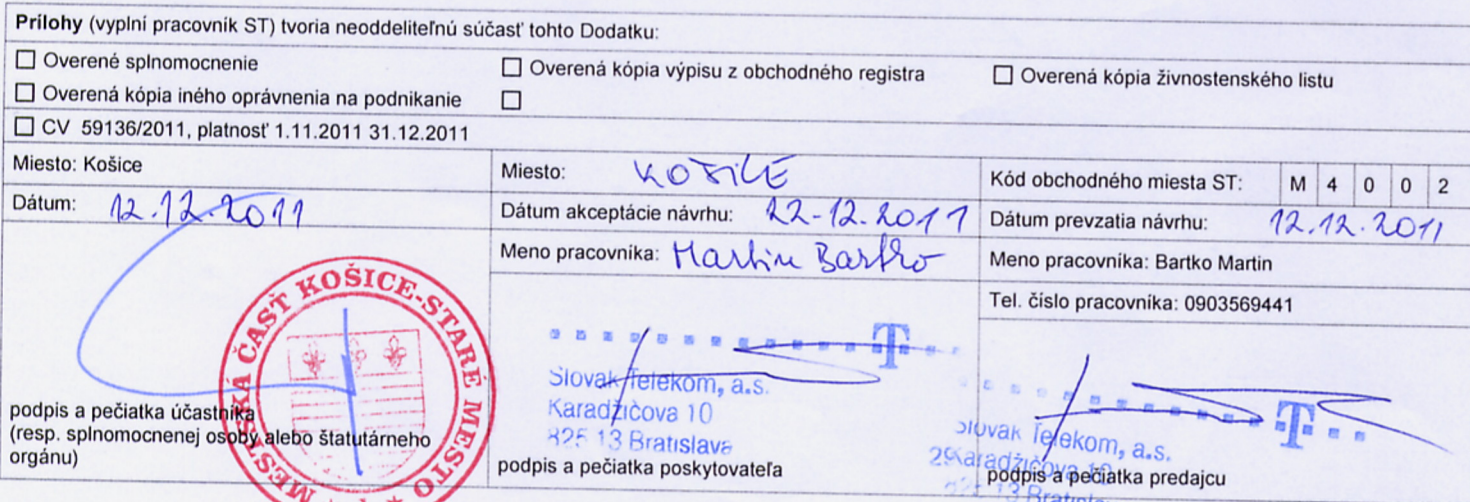 Prílohy (vyplní pracovník ST) tvoria neoddeliteľnú súčasť tohto Dodatku:
☐ Overené splnomocnenie
☐ Overená kópia výpisu z obchodného registra
☐ Overená kópia živnostenského listu
☐ Overená kópia iného oprávnenia na podnikanie
☐
☐ CV 59136/2011, platnosť 1.11.2011 31.12.2011
Miesto: Košice
Dátum: 12.12.2011
MESTSKÁ ČASŤ KOŠICE-STARÉ MESTO
podpis a pečiatka účastníka
(resp. splnomocnenej osoby alebo štatutárneho
orgánu)
Miesto: KOŠICE
Dátum akceptácie návrhu: 12-12.2011
Meno pracovníka: Martin Bartko
T
Slovak Telekom, a.s.
Karadžičova 10
825 13 Bratislava
podpis a pečiatka poskytovateľa
Kód obchodného miesta ST: M 4 0 0 2
Dátum prevzatia návrhu: 12.12.2011
Meno pracovníka: Bartko Martin
Tel. číslo pracovníka: 0903569441
T
Slovak Telekom, a.s.
29 Karadžičova 10
825 13
podpis a pečiatka predajcu